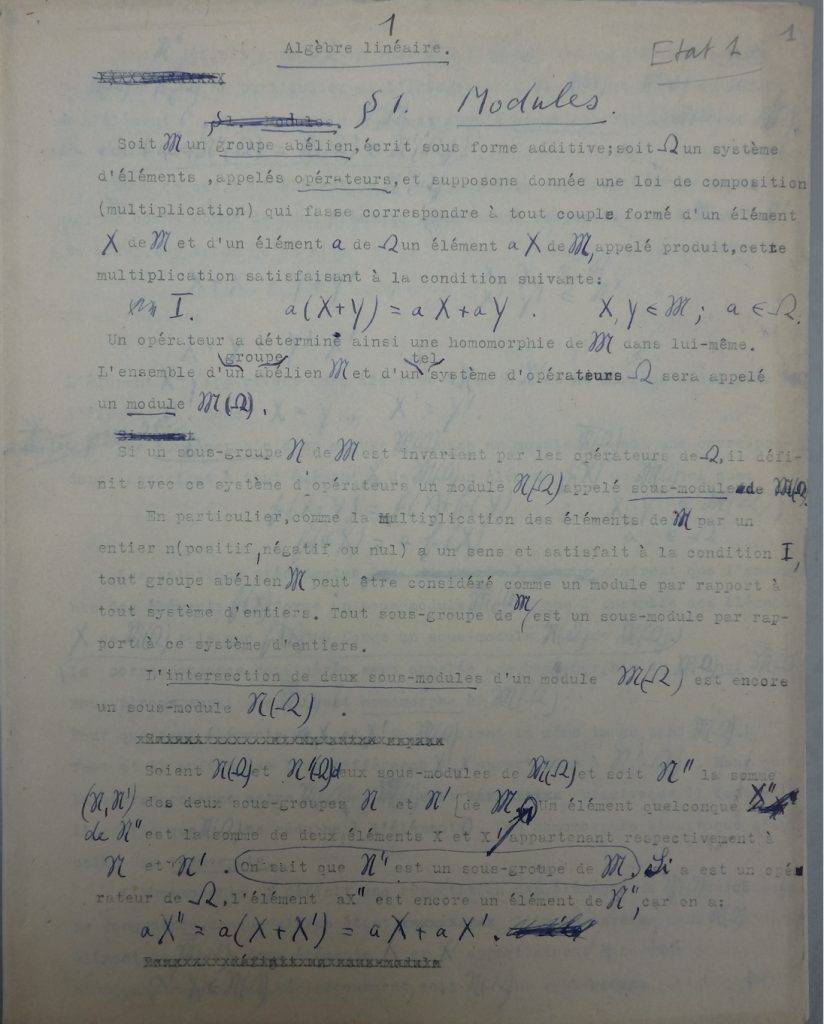 1
Algèbre linéaire.
Etat 1
1
§ 1. Modules.
Soit 𝔐 un groupe abélien, écrit sous forme additive; soit Ω un système
d'éléments ,appelés opérateurs, et supposons donnée une loi de composition
(multiplication) qui fasse correspondre à tout couple formé d'un élément
X de 𝔐 et d'un élément a de Ω un élément a X de 𝔐, appelé produit, cette
multiplication satisfaisant à la condition suivante:
I. a(X+Y) = a X + a Y . X, Y ∈ 𝔐 ; a ∈ Ω.
Un opérateur a détermine ainsi une homomorphie de 𝔐 dans lui-même.
groupe tel
L'ensemble d'un abélien 𝔐 et d'un système d'opérateurs Ω sera appelé
un module 𝔐(Ω).
Si un sous-groupe 𝔑 de 𝔐 est invariant par les opérateurs de Ω, il défi-
nit avec ce système d'opérateurs un module 𝔑(Ω) appelé sous-module de 𝔐(Ω).
En particulier, comme la multiplication des éléments de 𝔐 par un
entier n(positif, négatif ou nul) a un sens et satisfait à la condition I,
tout groupe abélien 𝔐 peut être considéré comme un module par rapport à
tout système d'entiers. Tout sous-groupe de 𝔐 est un sous-module par rap-
port à ce système d'entiers.
L'intersection de deux sous-modules d'un module 𝔐(Ω) est encore
un sous-module 𝔑(Ω) .
Soient 𝔑(Ω) et 𝔑'(Ω) deux sous-modules de 𝔐(Ω) et soit 𝔑" la somme
(𝔑,𝔑') des deux sous-groupes 𝔑 et 𝔑' [de 𝔐. Un élément quelconque X"
de 𝔑" est la somme de deux éléments X et X' appartenant respectivement à
𝔑 et 𝔑' . On sait que 𝔑" est un sous-groupe de 𝔐. Si a est un opé-
rateur de Ω, l'élément aX" est encore un élément de 𝔑", car on a:
a X" = a(X + X') = a X + a X'.